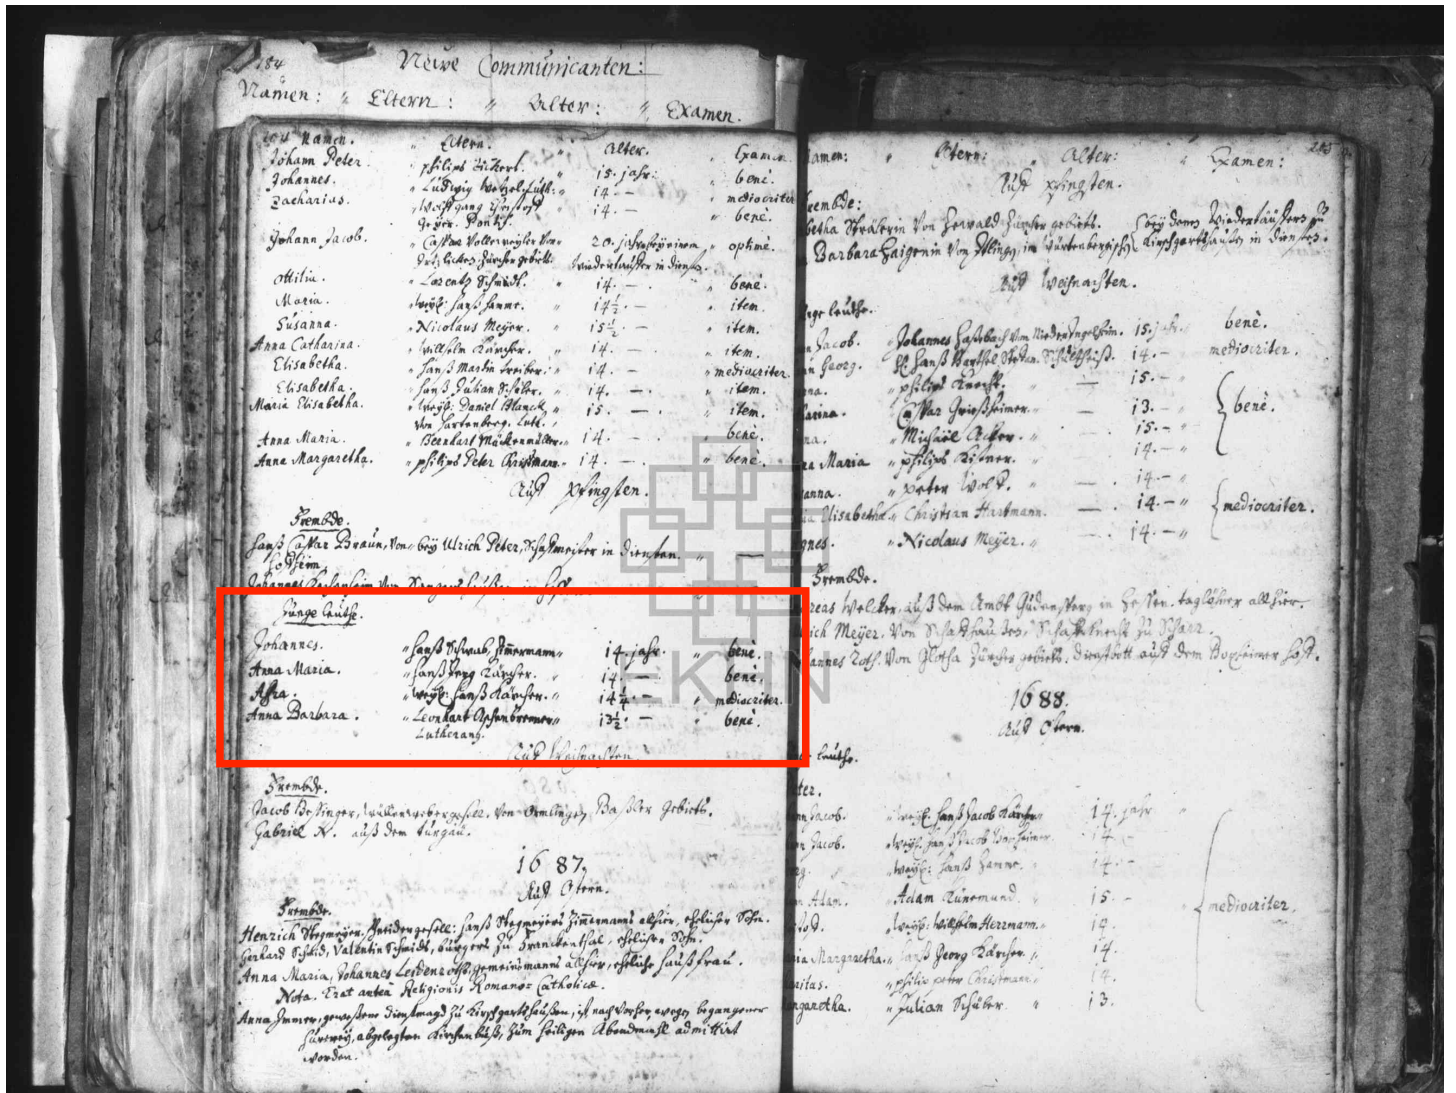 184
Neüe Communicanten:
Namen: " Eltern: " Alter: " Examen.
184 Namen. " Eltern. " Alter. " Examen.
Johann Peter. " philips Eckert. " 15. jahr. " benè.
Johannes. " Ludwig Wetzel, Luth. " 14. — " mediocriter
Zacharias. " Wolffgang 14. — " benè.
Geyer. Pontif.
Johann Jacob. " Caspar Vollenweyler von 20. jahr, bey einem " optimè.
Zürcher gebiets. Wiedertäuffer in diensten.
Ottilia. " Lorentz Schmidt. " 14. — " benè.
Maria. " weyl: Hanß Hamme. " 14½. — " item.
Susanna. " Nicolaus Meyer. " 15½. — " item.
Anna Catharina. " Willhelm Kärcher. " 14. — " item.
Elisabetha. " Hanß Martin Treiber. " 14. — " mediocriter.
Elisabetha. " Hanß Julian Schüber. " 14. — " item.
Maria Elisabetha. " weyl: Daniel Blanck, " 15. — " item.
von Hartenberg. Luth.
Anna Maria. " Bernhart Mückenmüller. " 14. — " benè.
Anna Margaretha. " philips Peter Christmann. " 14. — " benè.
Auff pfingsten.
Frembde.
Hanß Caspar Braun, von bey Ulrich Peter, Schaffmeister in diensten. " —
Johannes von
Junge leuthe.
Johannes. " Hanß Schwab, Zimmermann " 14. jahr. " benè.
Anna Maria. " Hanß Jerg Kärcher. " 14. — benè.
Afra. " weyl: Hanß Kärcher. " 14¼. — " mediocriter.
Anna Barbara. " Leonhart Aschenbrenner " 13½. — " benè.
Lutheran9.
Auff Weihnachten.
Frembde.
Jacob Bossinger, wüllenwebergesell. von Ormlingen, Baßler Gebiets.
Gabriel N. auß dem Turgau.
1687.
Auff Ostern.
Frembde.
Henrich Stegmeyer, Hanß Stegmeyers Zimmermanns allhier, ehelicher Sohn.
Gerhard Schmid, Valentin Schmids, burgers zu Franckenthal, ehelicher Sohn.
Anna Maria, Johannes Leidenroths, gemeinsmanns allhier, eheliche haußfrau.
Nota. Erat antea Religionis Romano-Catholicæ.
Anna Immer, gewesene dienstmagd zu Kirschgartshausen, ist nach vorher, wegen begangener
hurerey, abgelegter Kirchenbuß, zum heiligen Abendmahl admittirt
worden.
EKHN
205
amen: " Eltern: " Alter: " Examen:
Auff pfingsten.
rembde:
betha Strälerin von Herwald Zürcher gebiets. bey denen Wiedertäuffern zu
Barbara Haigenin von im Würtenbergischen Kirschgartshausen in diensten.
Auff Weihnachten.
nge leuthe.
n Jacob. " Johannes Haßbach von Nieder Ingelheim. 15. jahr. benè.
n Georg. Hanß Barthel Stephan, Schultheiß. 14. — mediocriter.
na. " philips Knecht. — 15. — "
arina. " Caspar Grießheimer. — 13. — " benè.
na. " Michäel Acker. — 15. — "
na Maria " philips Kißner. — 14. — "
anna. " peter Wolf. — 14. — "
ia Elisabetha. " Christian Hartmann. — 14. — " mediocriter.
gnes. " Nicolaus Meyer. — 14. — "
Frembde.
reas Welcker, auß dem Ambt Gudensperg in Hessen. taglöhner allhier.
rich Meyer, von Schaffhausen, Schaffknecht zu Scharr.
annes Roth. von Glotha Zürcher gebiets. dienstbott auff dem Bopheimer hoff.
1688.
Auff Ostern.
leuthe.
ter.
nn Jacob. " weyl: Hanß Jacob Kärcher 14. jahr "
n Jacob. " weyl: Hanß Jacob Bopheimer. 14. —
rg. " weyl: Hanß Hamme. " 14. —
n Adam. " Adam Künemund. " 15. — mediocriter.
" weyl: Willhelm Herrmann. " 14.
ria Margaretha. " Hanß Georg Kärcher. " 14.
aritas. " philip peter Christmann. " 14.
rgaretha. " Julian Schüber. " 13.